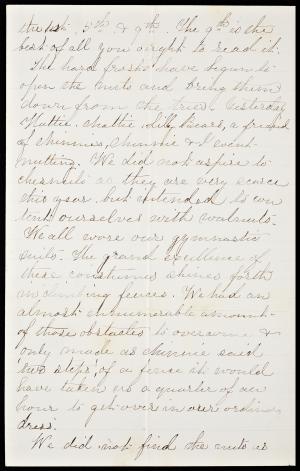 the 1st, 5th, & 9th. The 9th is the
best of all you ought to read it.
The hard frosts have begun to
open the nuts and bring them
down from the trees. Yesterday
Hattie, Mattie, Lilly, a friend
of Minnie's, Minnie & I went
nutting. We did not aspire to
chesnuts as they are very scarce
this year, but intended to con
tent ourselves with walnuts.
We all wore our gymnastic
suits. The grand excellence of
these costumes shines forth
in climbing fences. We had an
almost innumerable amount
of those obstacles to overcome &
only made as Minnie said
two steps, of a fence it would
have taken us a quarter of an
hour to get over in our ordinary
dress.
We did not find the nuts as